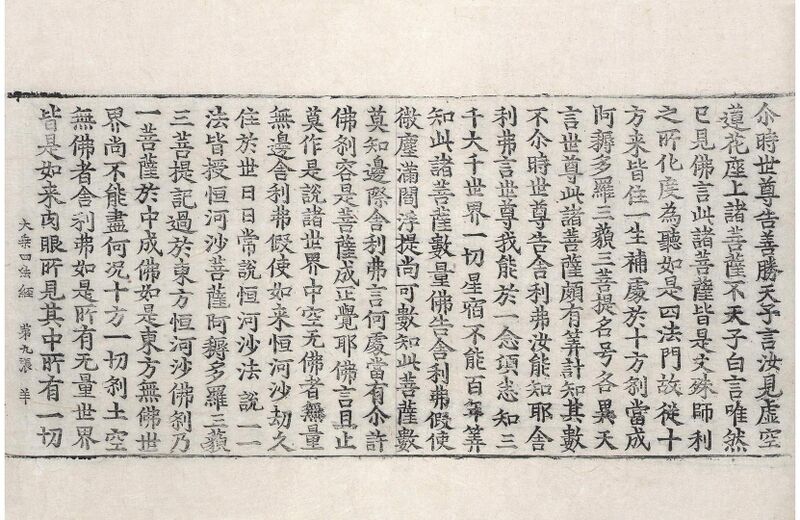 尒時世尊告善勝天子言汝見虛空
蓮花座上諸菩薩不天子白言唯然
已見佛言此諸菩薩皆是文殊師利
之所化度為聽如是四法門故從十
方來皆住一生補處於十方刹當成
阿耨多羅三藐三菩提名号各異天
言世尊此諸菩薩頗有筭計知其數
不尒時世尊告舍利弗汝能知耶舍
利弗言世尊我能於一念頃悉知三
千大千世界一切星宿不能百年筭
知此諸菩薩數量佛告舍利弗假使
微塵滿閻浮提尚可數知此菩薩數
莫知邊際舍利弗言何處當有尒許
佛刹容是菩薩成正覺耶佛言且止
莫作是說諸世界中空无佛者無量
無邊舍利弗假使如来恒河沙劫久
住於世日日常說恒河沙法說一一
法皆授恒河沙菩薩阿耨多羅三藐
三菩提記過於東方恒河沙佛刹乃
一菩薩於中成佛如是東方無佛世
界尚不能盡何况十方一切刹土空
無佛者舍利弗如是所有无量世界
皆是如来肉眼所見其中所有一切
大乘四法經 第九張 羊